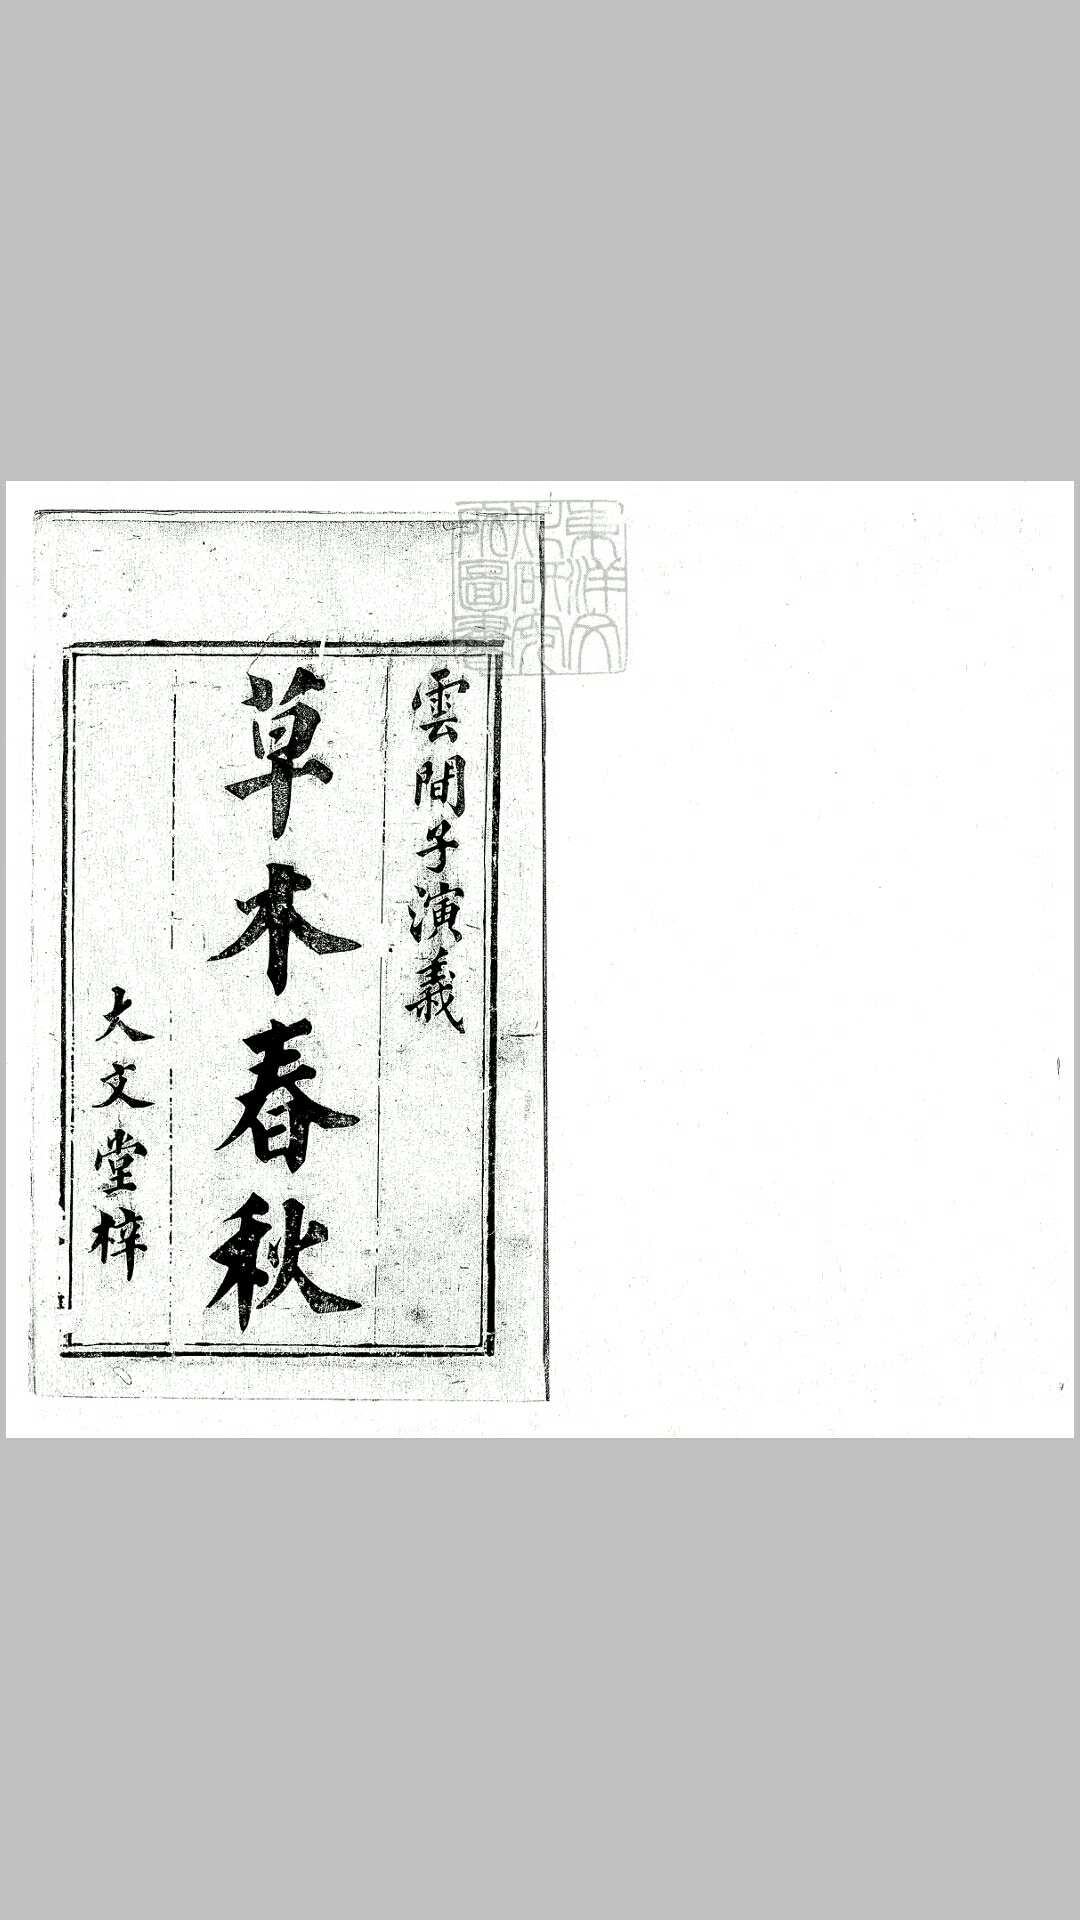 雲間子演義
草木春秋
大文堂梓
東洋文
化研究
所圖書